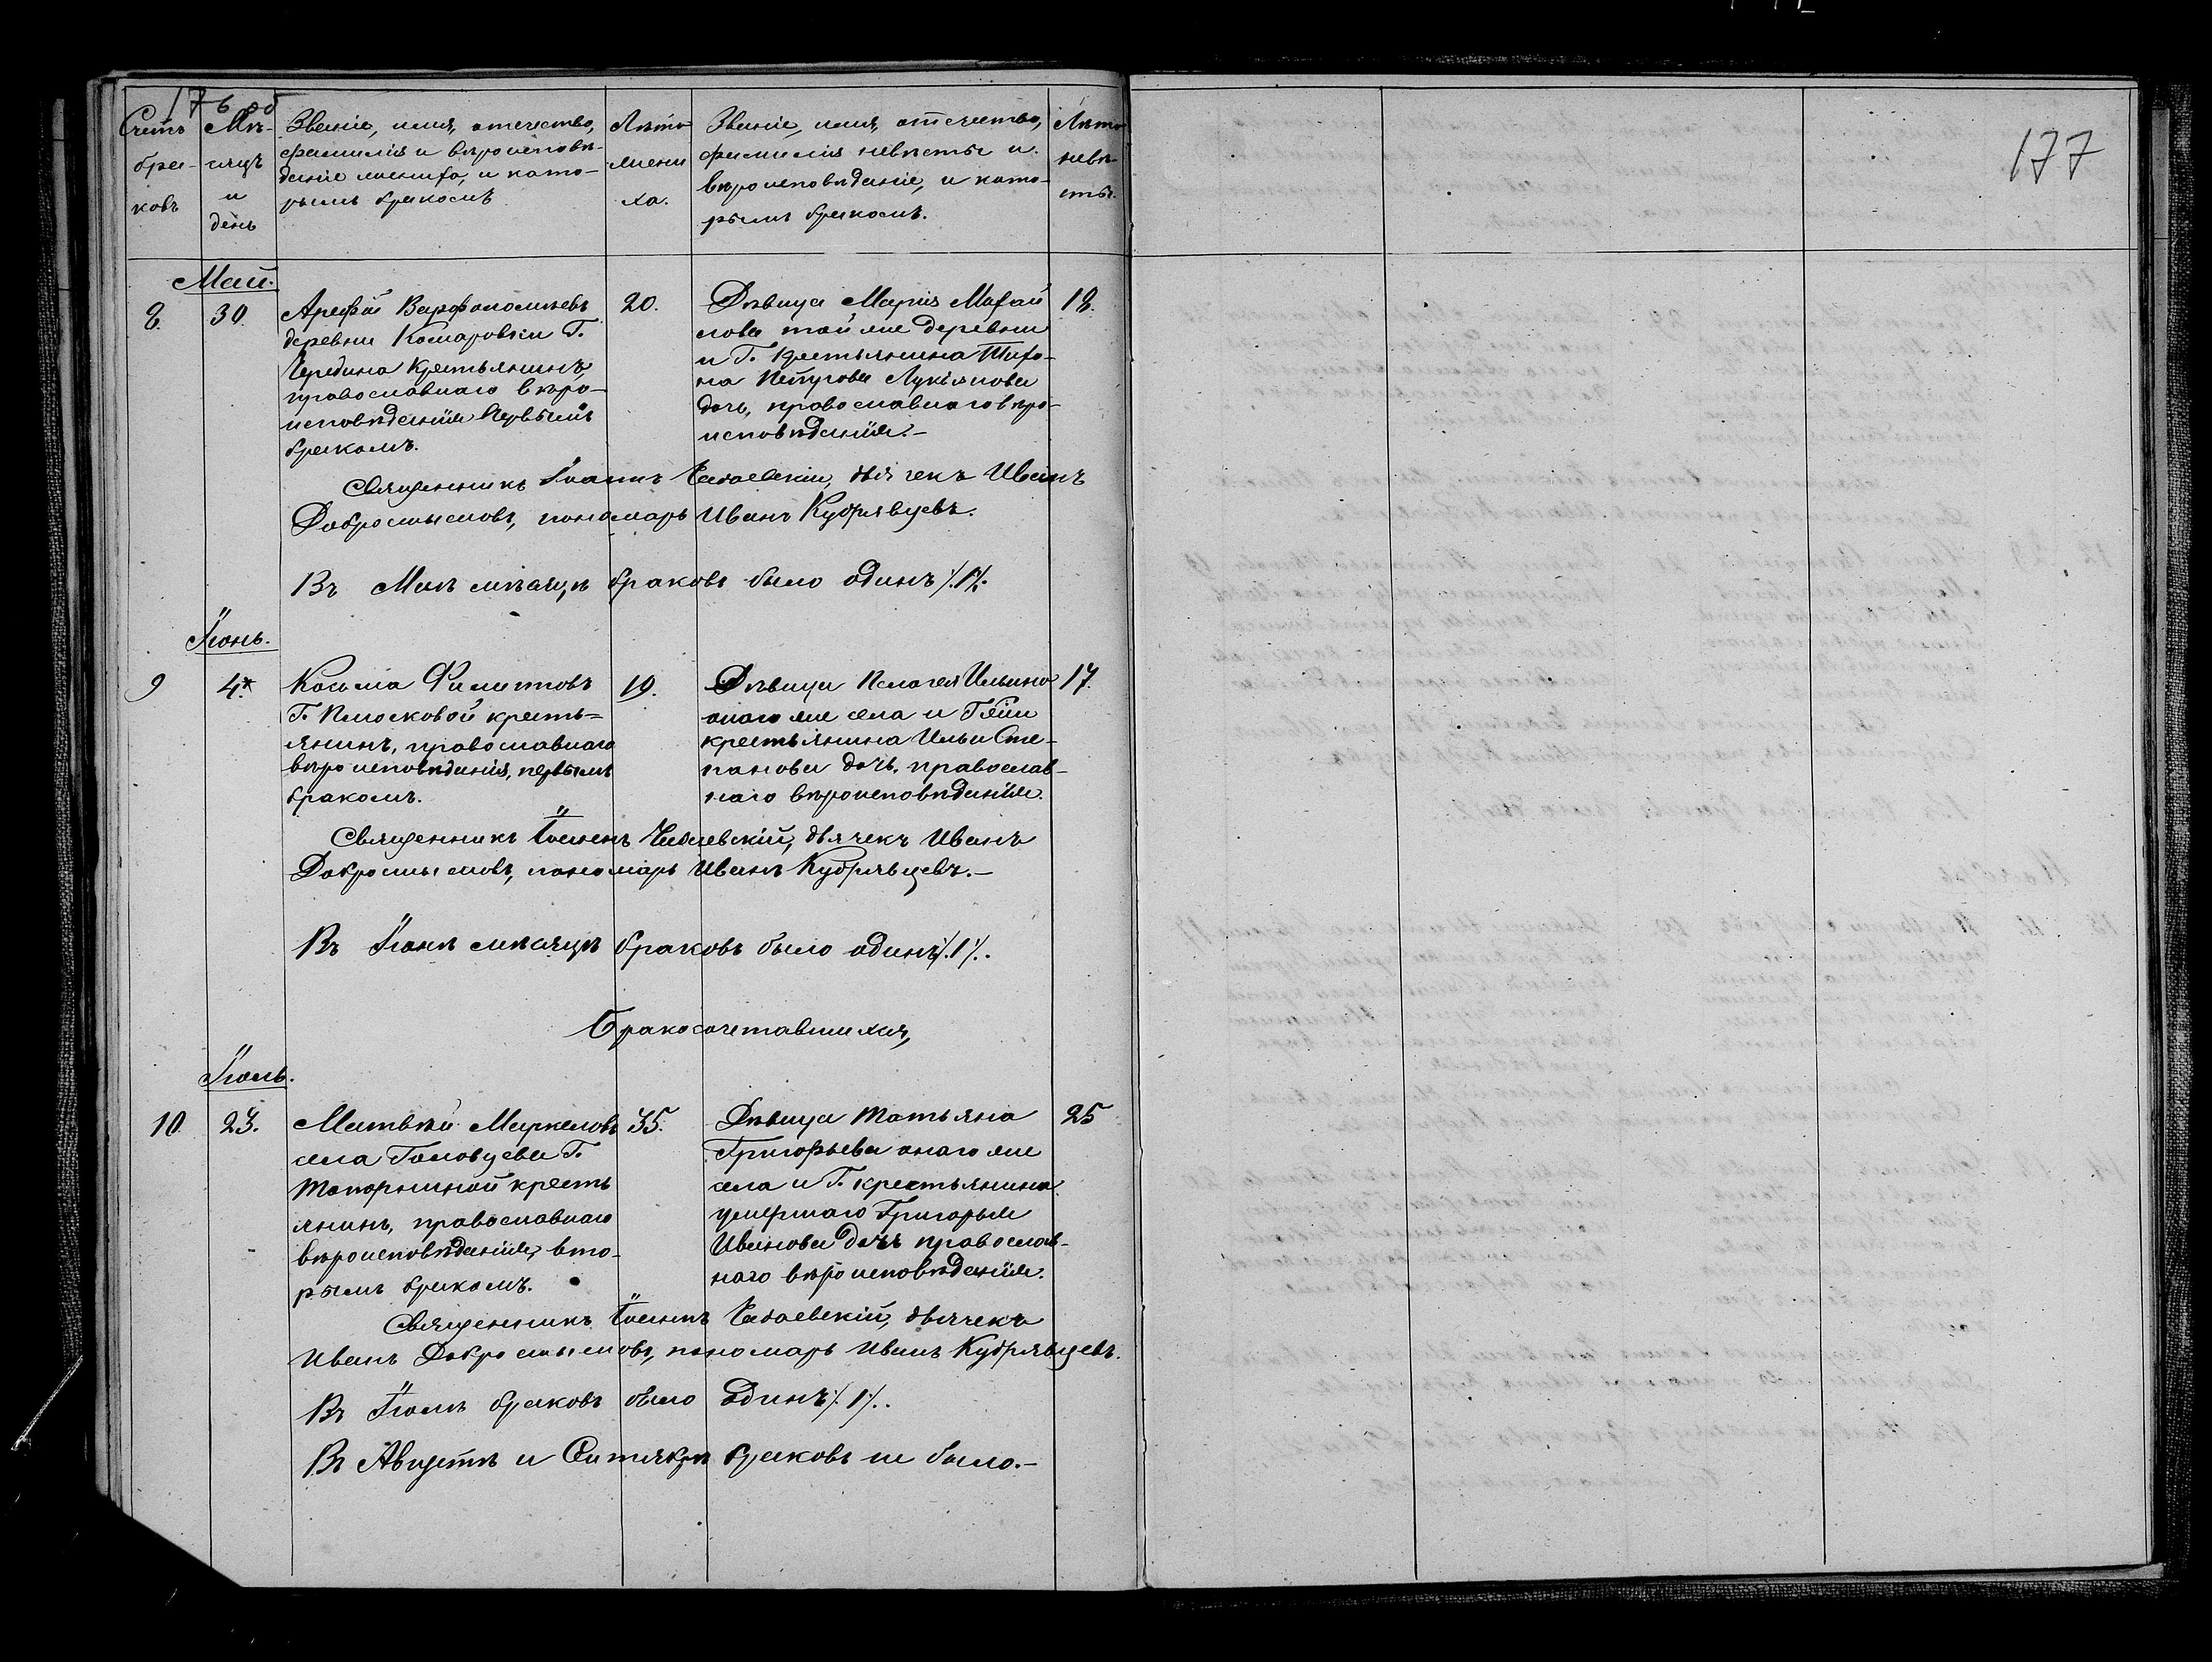 176 об
177
Счетъ
бра-
ковъ
Мѣ-
сяцъ
и
день
Званіе, имя, отечество,
фамилія и вѣроисповѣ-
даніе жениха, и кото-
рымъ бракомъ
Лѣто
жени
ха.
Званіе, имя, отечество,
фамилія невѣсты и
вѣроисповѣданіе, и кото-
рымъ бракомъ.
Лѣто
невѣ-
сты.
Май.
8. 30.
Арефій Варфоломѣевъ
деревни Комаровки Г.
Чередина крестьянинъ,
православнаго вѣро-
исповѣданія первымъ
бракомъ.
20.
Дѣвица Марія Михай
лова той же деревни
и Г. крестьянина Тихо-
на Петрова Лукьянова
дочь, православнаго вѣро-
исповѣданія.-
18.
Священникъ Іоаннъ дьячекъ Иванъ
Добросмысловъ, пономарь Иванъ Кудрявцевъ.
Въ Маѣ мѣсяцѣ браковъ было одинъ ./.1./.
Іюнь.
9 4.*
Косьма Филиповъ
Г. Плюсковой кресть=
янинъ, православнаго
вѣроисповѣданія, первымъ
бракомъ.
19.
Дѣвица Пелагея Ильина
онаго же села и Г-жи
крестьянина Ильи Сте-
панова дочь, православ-
наго вѣроисповѣданія.
17.
Священникъ Іоаннъ дьячекъ Иванъ
Добросмысловъ, пономарь Иванъ Кудрявцевъ.-
Въ Іюнѣ мѣсяцѣ браковъ было одинъ ./.1./.
Бракосочетавшихся,
Іюль.
10. 23.
Матвѣй Маркеловъ
села Головцева Г.
Топорниной кресть
янинъ, православнаго
вѣроисповѣданія, вто-
рымъ бракомъ.
35.
Дѣвица Татьяна
Григорьева онаго же
села и Г. крестьянина
умершаго Григорья
Иванова дочь православ-
наго вѣроисповѣданія.
25
Священникъ Іоаннъ дьячекъ
Иванъ Добросмысловъ, пономарь Иванъ Кудрявцевъ.
Въ Іюлѣ браковъ было одинъ ./.1./.
Въ Августѣ и Сентябрѣ браковъ не было.-